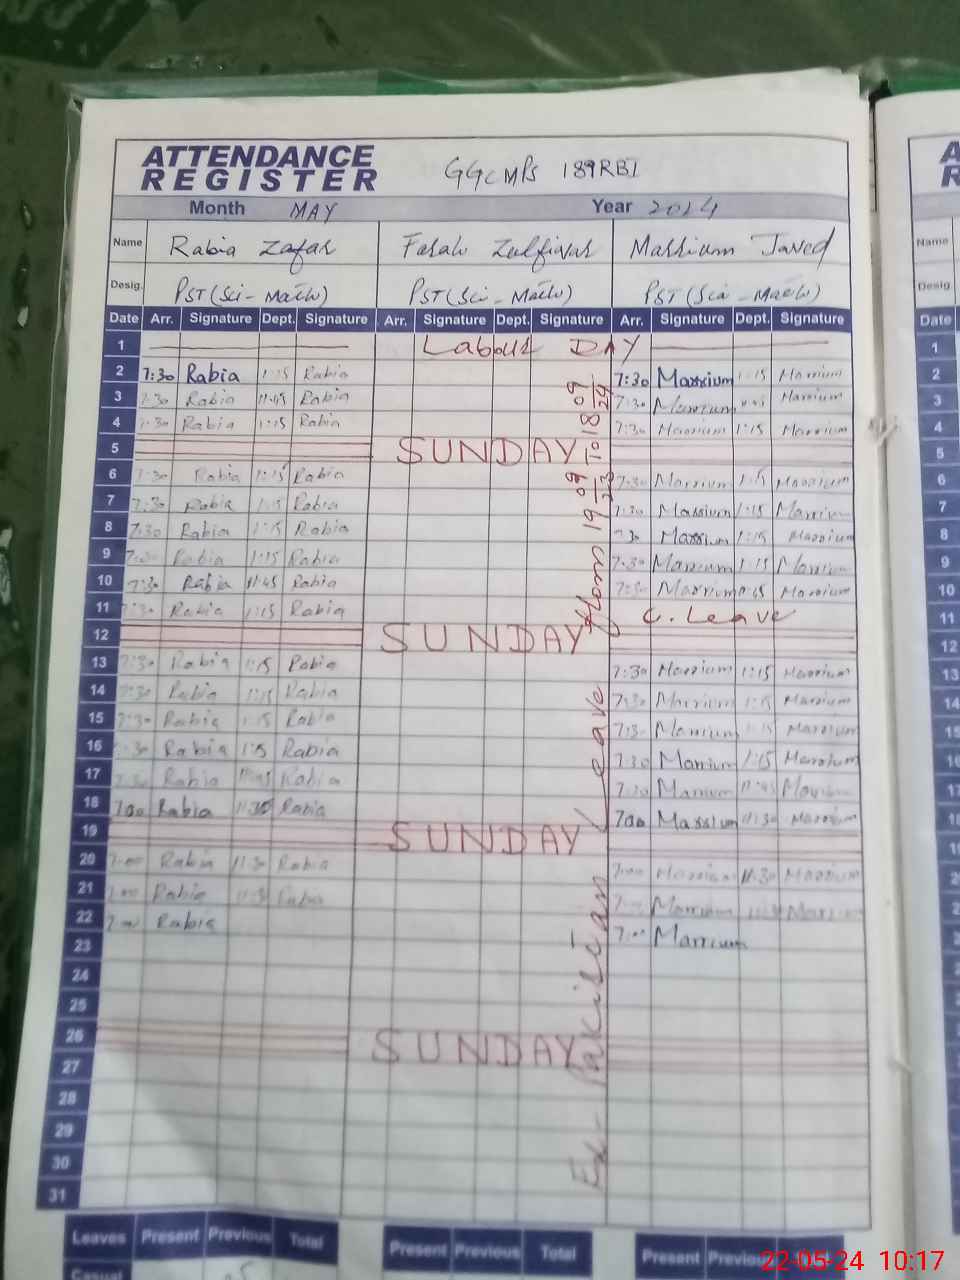 ATTENDANCE
REGISTER
GGCMPS 189RBI
Month MAY Year 2024
Name Rabia Zafar Farah Zulfiqar Marrium Javed
Desig. PST(Sci-Math) PST(Sci-Math) PST(Sci-Math)
Date Arr. Signature Dept. Signature Arr. Signature Dept. Signature Arr. Signature Dept. Signature
1 Labour DAY
2 7:30 Rabia 1:15 Rabia 7:30 Marrium 1:15 Marrium
3 7:30 Rabia 11:45 Rabia 7:30 Marrium Marrium
4 7:30 Rabia 1:15 Rabia 7:30 Marrium 1:15 Marrium
5 SUNDAY
6 7:30 Rabia 1:15 Rabia 7:30 Marrium 1:15 Marrium
7 7:30 Rabia 1:15 Rabia 7:30 Marrium 1:15 Marrium
8 7:30 Rabia 1:15 Rabia 7:30 Marrium 1:15 Marrium
9 7:30 Rabia 1:15 Rabia 7:30 Marrium 1:15 Marrium
10 7:30 Rabia 11:45 Rabia 7:30 Marrium 11:45 Marrium
11 7:30 Rabia 1:15 Rabia C. Leave
12 SUNDAY
13 7:30 Rabia 1:15 Rabia 7:30 Marrium 1:15 Marrium
14 7:30 Rabia 1:15 Rabia 7:30 Marrium 1:15 Marrium
15 7:30 Rabia 1:15 Rabia 7:30 Marrium 1:15 Marrium
16 7:30 Rabia 1:15 Rabia 7:30 Marrium 1:15 Marrium
17 7:30 Rabia 11:45 Rabia 7:30 Marrium 11:45 Marrium
18 7:00 Rabia 11:30 Rabia 7:00 Marrium 11:30 Marrium
19 SUNDAY
20 7:00 Rabia 11:30 Rabia 7:00 Marrium 11:30 Marrium
21 7:00 Rabia 11:30 Rabia 7:00 Marrium 11:30 Marrium
22 7:00 Rabia 7:00 Marrium
23
24
25
26 SUNDAY
27
28
29
30
31
Ex-Pakistan Leave from 19 09 23 to 18 09 24
Leaves Present Previous Total Present Previous Total Present
Casual
Name
Desig.
Date
1
2
3
4
5
6
7
8
9
10
11
12
13
14
22-05-24 10:17